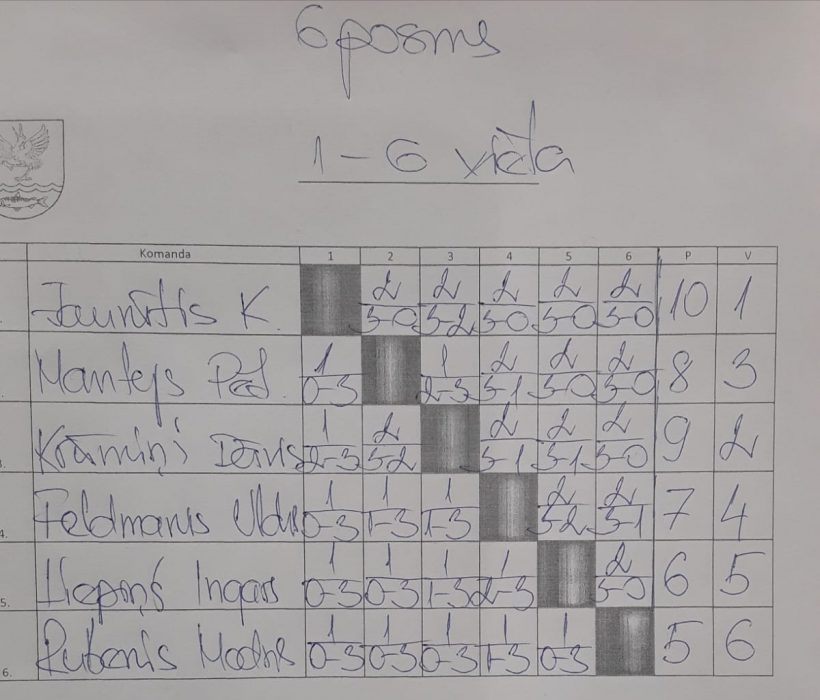 6 posms
1 - 6 vieta
Komanda 1 2 3 4 5 6 P V
Jaunītis K. 2 3-0 2 3-2 2 3-0 2 3-0 2 3-0 10 1
1 0-3 1 2-3 2 3-1 2 3-0 2 3-0 8 3
3. Krāmiņš 1 2-3 2 3-2 2 3-1 2 3-1 2 3-0 9 2
4. Feldmanis Uldis 1 0-3 1 1-3 1 1-3 2 3-2 2 3-1 7 4
5. Liepiņš Ingars 1 0-3 1 0-3 1 1-3 1 2-3 2 3-0 6 5
6. Rubenis 1 0-3 1 0-3 1 0-3 1 1-3 1 0-3 5 6